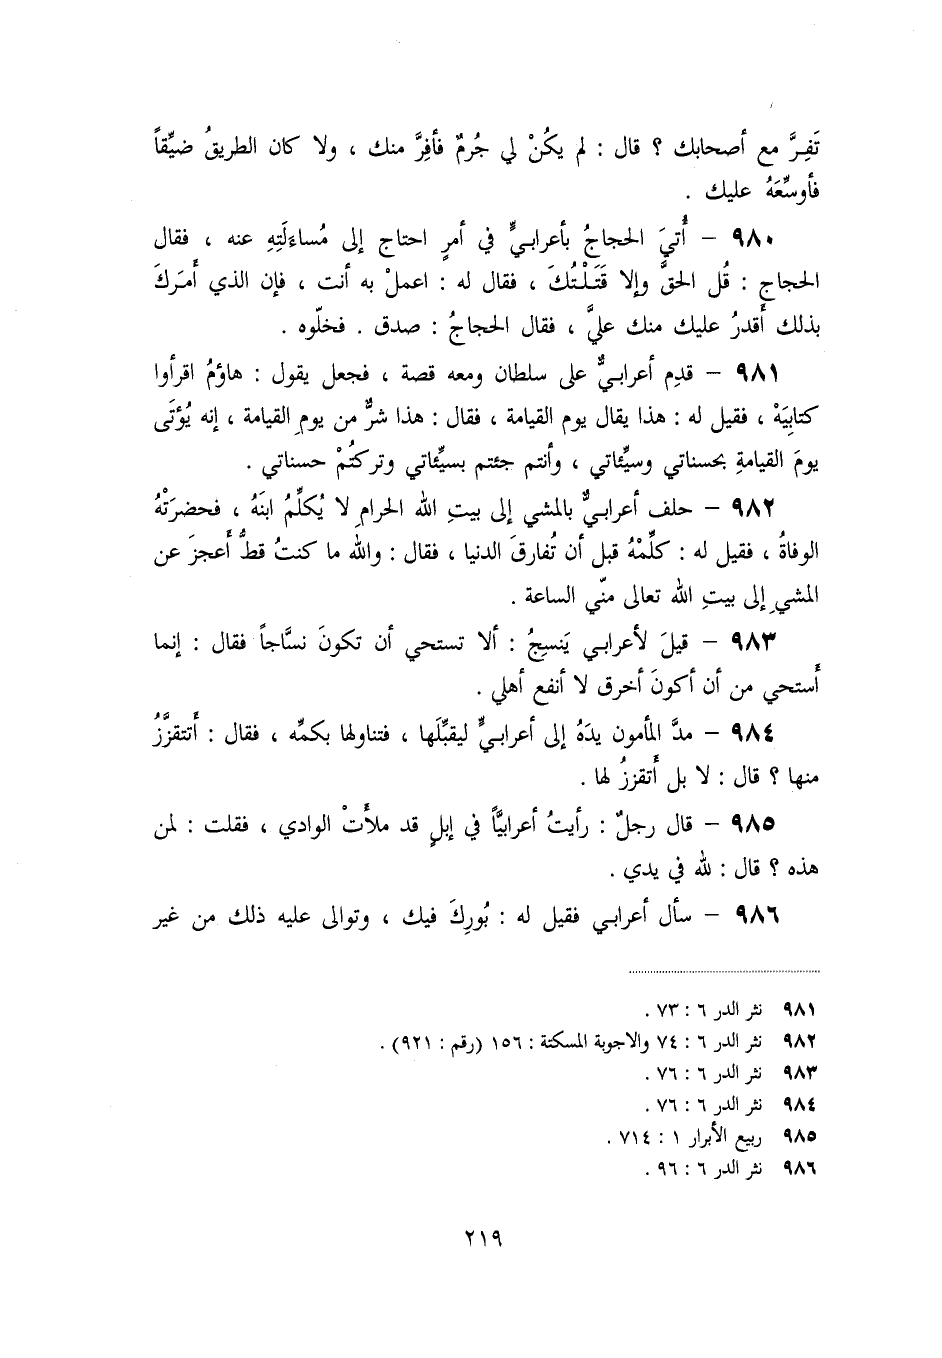 تَفِرَّ مع أصحابك ؟ قال : لم يكُنْ لي جُرمٌ فأفِرَّ منك ، ولا كان الطريقُ ضيِّقاً
فأوسِّعَهُ عليك .
٩٨٠ – أُتيَ الحجاجُ بأعرابيٍّ في أمرٍ احتاج إلى مُساءَلَتِهِ عنه ، فقال
الحجاج : قُل الحقَّ وإلا قَتَلْتُكَ ، فقال له : اعملْ به أنت ، فإن الذي أَمَرَكَ
بذلك أَقدرُ عليك منك عليَّ ، فقال الحجاجُ : صدق . فخلّوه .
٩٨١ – قدِم أعرابيٌّ على سلطان ومعه قصة ، فجعل يقول : هاؤمُ اقرأوا
كتابِيَهْ ، فقيل له : هذا يقال يوم القيامة ، فقال : هذا شرٌّ من يومِ القيامة ، إنه يُؤتَى
يومَ القيامةِ بحسناتي وسيِّئاتي ، وأنتم جئتم بسيِّئاتي وتركتُمْ حسناتي .
٩٨٢ – حلف أعرابيٌّ بالمشي إلى بيتِ الله الحرامِ لا يُكلِّمُ ابنَهُ ، فحضرَتْهُ
الوفاةُ ، فقيل له : كلِّمْهُ قبل أن تُفارقَ الدنيا ، فقال : والله ما كنتُ قطُّ أَعجزَ عن
المشيِ إلى بيتِ الله تعالى منّي الساعة .
٩٨٣ – قيلَ لأعرابي يَنسِجُ : ألا تستحي أن تكونَ نسَّاجاً فقال : إنما
أَستحي من أن أكونَ أخرق لا أنفع أهلي .
٩٨٤ – مدَّ المأمون يدَهُ إلى أعرابيٍّ ليقبِّلَها ، فتناولها بكمِّه ، فقال : أَتتقزَّزُ
منها ؟ قال : لا بل أَتقززُ لها .
٩٨٥ – قال رجلٌ : رأيتُ أعرابيَّاً في إبلٍ قد ملأَتْ الوادي ، فقلت : لمن
هذه ؟ قال : لله في يدي .
٩٨٦ – سأل أعرابي فقيل له : بُورِكَ فيك ، وتوالى عليه ذلك من غير
٩٨١ نثر الدر ٦ : ٧٣ .
٩٨٢ نثر الدر ٦ : ٧٤ والاجوبة المسكتة : ١٥٦ (رقم : ٩٢١) .
٩٨٣ نثر الدر ٦ : ٧٦ .
٩٨٤ نثر الدر ٦ : ٧٦ .
٩٨٥ ربيع الأبرار ١ : ٧١٤ .
٩٨٦ نثر الدر ٦ : ٩٦ .
٢١٩